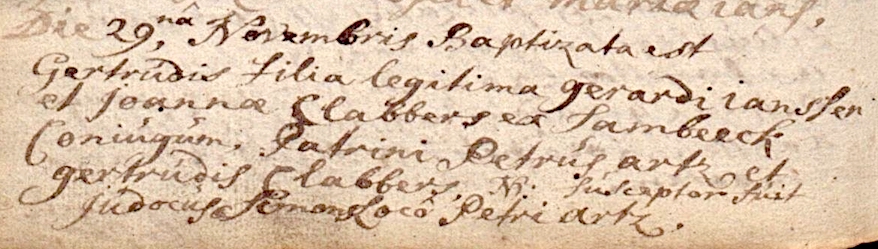 Mariae ians,
Die 29.nâ Novembris Baptizata est
Gertrudis Filia legitima gerardi ianssen
et Joannae Clabbers ex Sambeeck
Coniugum. Patrini Petrus artz et
gertrudis Clabbers, N: Susceptor fuit
Judocus Simons Locô Petri artz.